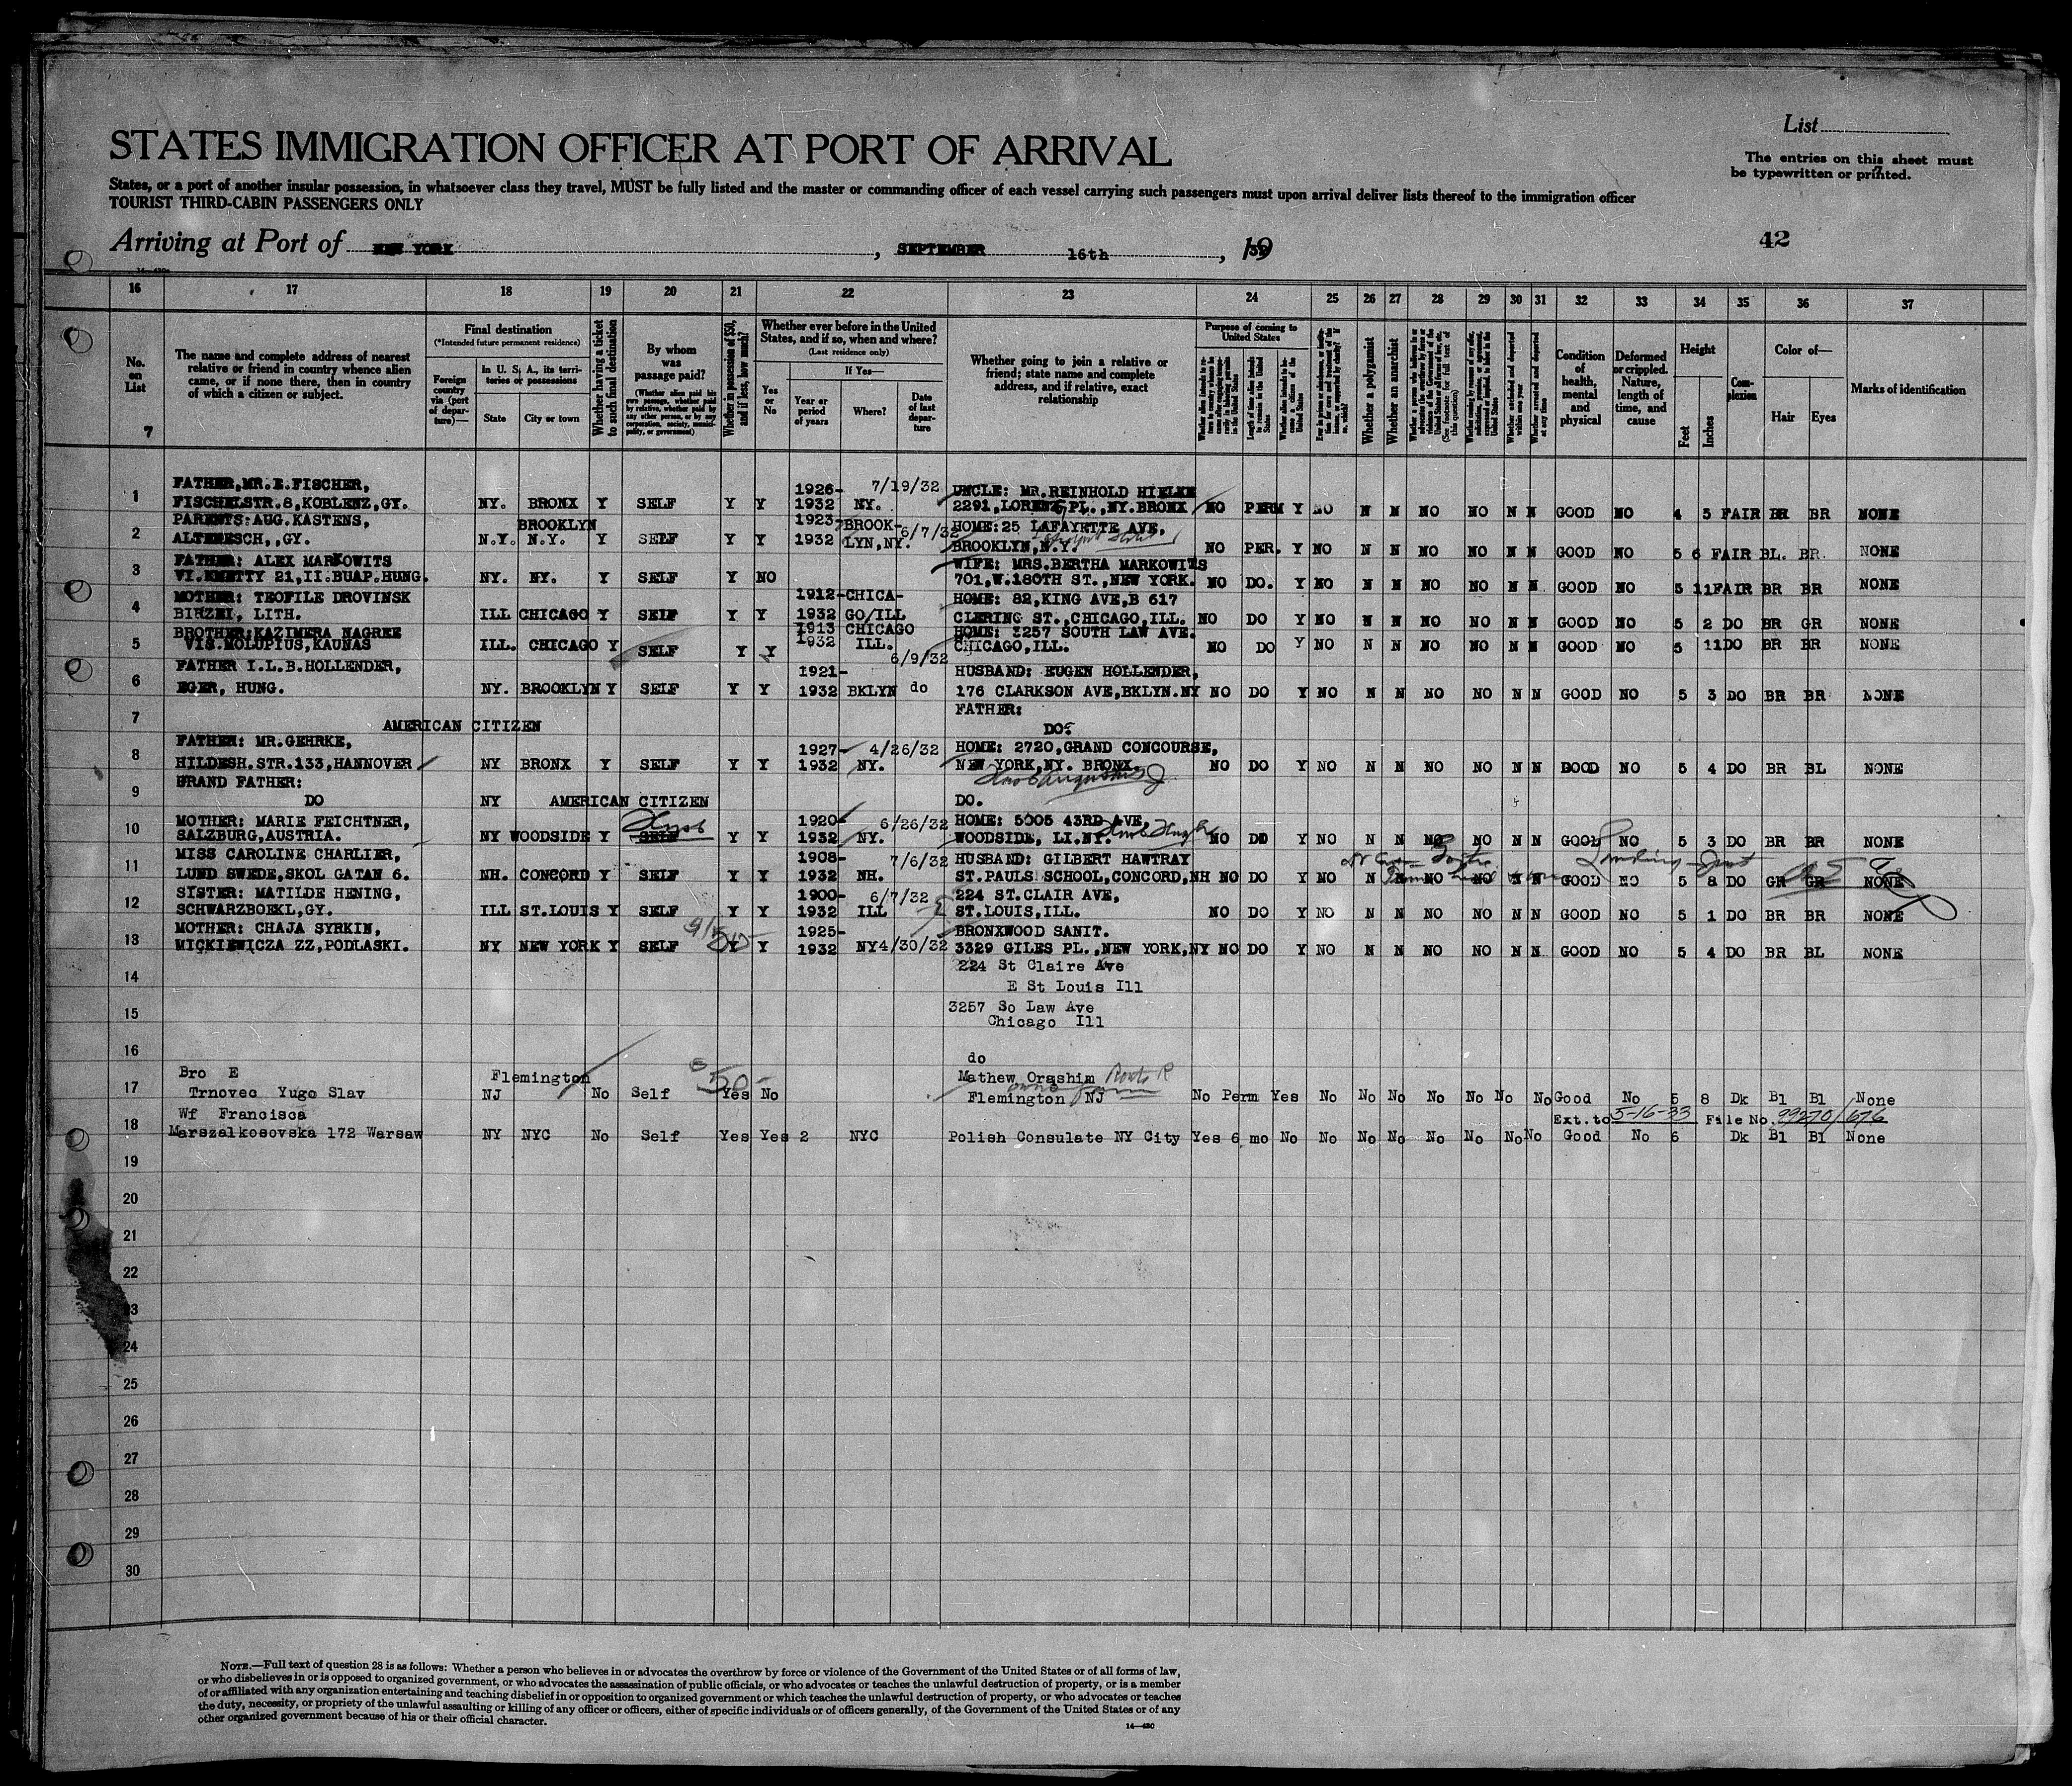 List
STATES IMMIGRATION OFFICER AT PORT OF ARRIVAL
The entries on this sheet must
be typewritten or printed.
States, or a port of another insular possession, in whatsoever class they travel, MUST be fully listed and the master or commanding officer of each vessel carrying such passengers must upon arrival deliver lists thereof to the immigration officer
TOURIST THIRD-CABIN PASSENGERS ONLY
Arriving at Port of NEW YORK, SEPTEMBER 16th, 19
42
16 17 18 19 20 21 22 23 24 25 26 27 28 29 30 31 32 33 34 35 36 37
No. on List
7
The name and complete address of nearest relative or friend in country whence alien came, or if none there, then in country of which a citizen or subject.
Final destination
(*Intended future permanent residence)
Foreign country via (port of departure)—
In U. S. A., its territories or possessions
State
City or town
Whether having a ticket to such final destination
By whom was passage paid?
(Whether alien paid his own passage, whether paid by relative, whether paid by any other person, or by any corporation, society, municipality, or government)
Whether in possession of $50, and if less, how much?
Whether ever before in the United States, and if so, when and where?
(Last residence only)
Yes or No
If Yes—
Year or period of years
Where?
Date of last departure
Whether going to join a relative or friend; state name and complete address, and if relative, exact relationship
Purpose of coming to United States
Length of time alien intends to remain in the United States
Whether a polygamist
Whether an anarchist
(See footnote for full text of this question)
Whether arrested and deported at any time
Condition of health, mental and physical
Deformed or crippled. Nature, length of time, and cause
Height
Feet
Inches
Complexion
Color of—
Hair
Eyes
Marks of identification
FATHER,MR.E.FISCHER, 1926- 7/19/32 UNCLE: MR.REINHOLD HIELKE
1 FISCHELSTR.8,KOBLENZ,GY. NY. BRONX Y SELF Y Y 1932 NY. 2291,LORENZ PL.,NY.BRONX NO PERM Y NO N N NO NO N N GOOD NO 4 5 FAIR BR BR NONE
PARENTS:AUG.KASTENS, BROOKLYN 1923- BROOK- 6/7/32 HOME:25 LAFAYETTE AVE.
2 ALTENESCH,,GY. N.Y. N.Y. Y SELF Y Y 1932 LYN,NY. BROOKLYN,N.Y. NO PER. Y NO N N NO NO N N GOOD NO 5 6 FAIR BL. BR. NONE
FATHER: ALEX MARKOWITS WIFE: MRS.BERTHA MARKOWITS
3 VI.EMETTY 21,II:BUAP.HUNG. NY. NY. Y SELF Y NO 701,W.180TH ST.,NEW YORK. NO DO. Y NO N N NO NO N N GOOD NO 5 11 FAIR BR BR NONE
MOTHER: TEOFILE DROVINSK 1912- CHICA- HOME: 82,KING AVE,B 617
4 BIRZEI, LITH. ILL CHICAGO Y SELF Y Y 1932 GO/ILL CLERING ST.,CHICAGO,ILL. NO DO Y NO N N NO NO N N GOOD NO 5 2 DO BR GR NONE
BROTHER:KAZIMERA NAGREE 1913 CHICAGO HOME: 3257 SOUTH LAW AVE.
5 VIS.MOLUPIUS,KAUNAS ILL. CHICAGO Y SELF Y Y 1932 ILL. CHICAGO,ILL. NO DO Y NO N N NO NO N N GOOD NO 5 11 DO BR BR NONE
FATHER I.L.B.HOLLENDER, 1921- 6/9/32 HUSBAND: EUGEN HOLLENDER,
6 EGER, HUNG. NY. BROOKLYN Y SELF Y Y 1932 BKLYN do 176 CLARKSON AVE,BKLYN.NY NO DO Y NO N N NO NO N N GOOD NO 5 3 DO BR BR NONE
7 FATHER:
AMERICAN CITIZEN DO.
FATHER: MR.GEHRKE, 1927- 4/26/32 HOME: 2720,GRAND CONCOURSE,
8 HILDESH.STR.133,HANNOVER NY BRONX Y SELF Y Y 1932 NY. NEW YORK,NY. BRONX. NO DO Y NO N N NO NO N N GOOD NO 5 4 DO BR BL NONE
GRAND FATHER:
9 DO NY AMERICAN CITIZEN DO.
MOTHER: MARIE FEICHTNER, 1920- 6/26/32 HOME: 5005 43RD AVE,
10 SALZBURG,AUSTRIA. NY WOODSIDE Y SELF Y Y 1932 NY. WOODSIDE, LI.NY. NO DO Y NO N N NO NO N N GOOD NO 5 3 DO BR BR NONE
MISS CAROLINE CHARLIER, 1908- 7/6/32 HUSBAND: GILBERT HAWTRAY
11 LUND SWEDE,SKOL GATAN 6. NH. CONCORD Y SELF Y Y 1932 NH. ST.PAULS SCHOOL,CONCORD,NH NO DO Y NO N N NO NO N N GOOD NO 5 8 DO GR GR NONE
SISTER: MATILDE HENING, 1900- 6/7/32 224 ST.CLAIR AVE,
12 SCHWARZBOEKL,GY. ILL ST.LOUIS Y SELF Y Y 1932 ILL ST.LOUIS,ILL. NO DO Y NO N N NO NO N N GOOD NO 5 1 DO BR BR NONE
MOTHER: CHAJA SYRKIN, 1925- BRONXWOOD SANIT.
13 MICKIEWICZA ZZ,PODLASKI. NY NEW YORK Y SELF Y Y 1932 NY 4/30/32 3329 GILES PL.,NEW YORK,NY NO DO Y NO N N NO NO N N GOOD NO 5 4 DO BR BL NONE
224 St Claire Ave
14 E St Louis Ill
15 3257 So Law Ave
Chicago Ill
16 do
Bro E Flemington 50- Mathew Orashim
17 Trnovec Yugo Slav NJ No Self Yes No Flemington NJ No Perm Yes No No No No No No No Good No 5 8 Dk Bl Bl None
Wf Francisca Ext.to 5-16-33 File No. 99270/676
18 Marszalkosovska 172 Warsaw NY NYC No Self Yes Yes 2 NYC Polish Consulate NY City Yes 6 mo No No No No No No No No Good No 6 Dk Bl Bl None
19
20
21
22
23
24
25
26
27
28
29
30
NOTE.—Full text of question 28 is as follows: Whether a person who believes in or advocates the overthrow by force or violence of the Government of the United States or of all forms of law,
or who disbelieves in or is opposed to organized government, or who advocates the assassination of public officials, or who advocates or teaches the unlawful destruction of property, or is a member
of or affiliated with any organization entertaining and teaching disbelief in or opposition to organized government or which teaches the unlawful destruction of property, or who advocates or teaches
the duty, necessity, or propriety of the unlawful assaulting or killing of any officer or officers, either of specific individuals or of officers generally, of the Government of the United States or of any
other organized government because of his or their official character.
14—430